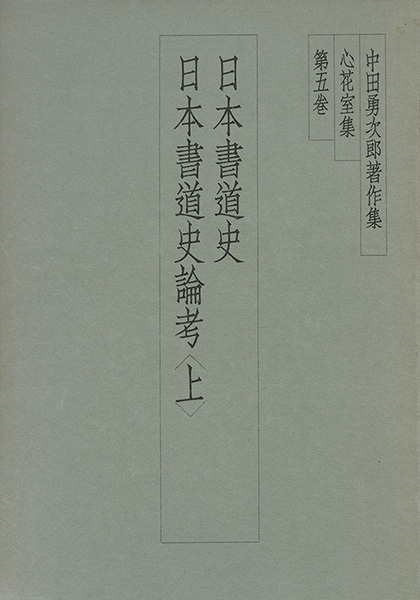 中田勇次郎著作集
心花室集
第五巻
日本書道史
日本書道史論考〈上〉